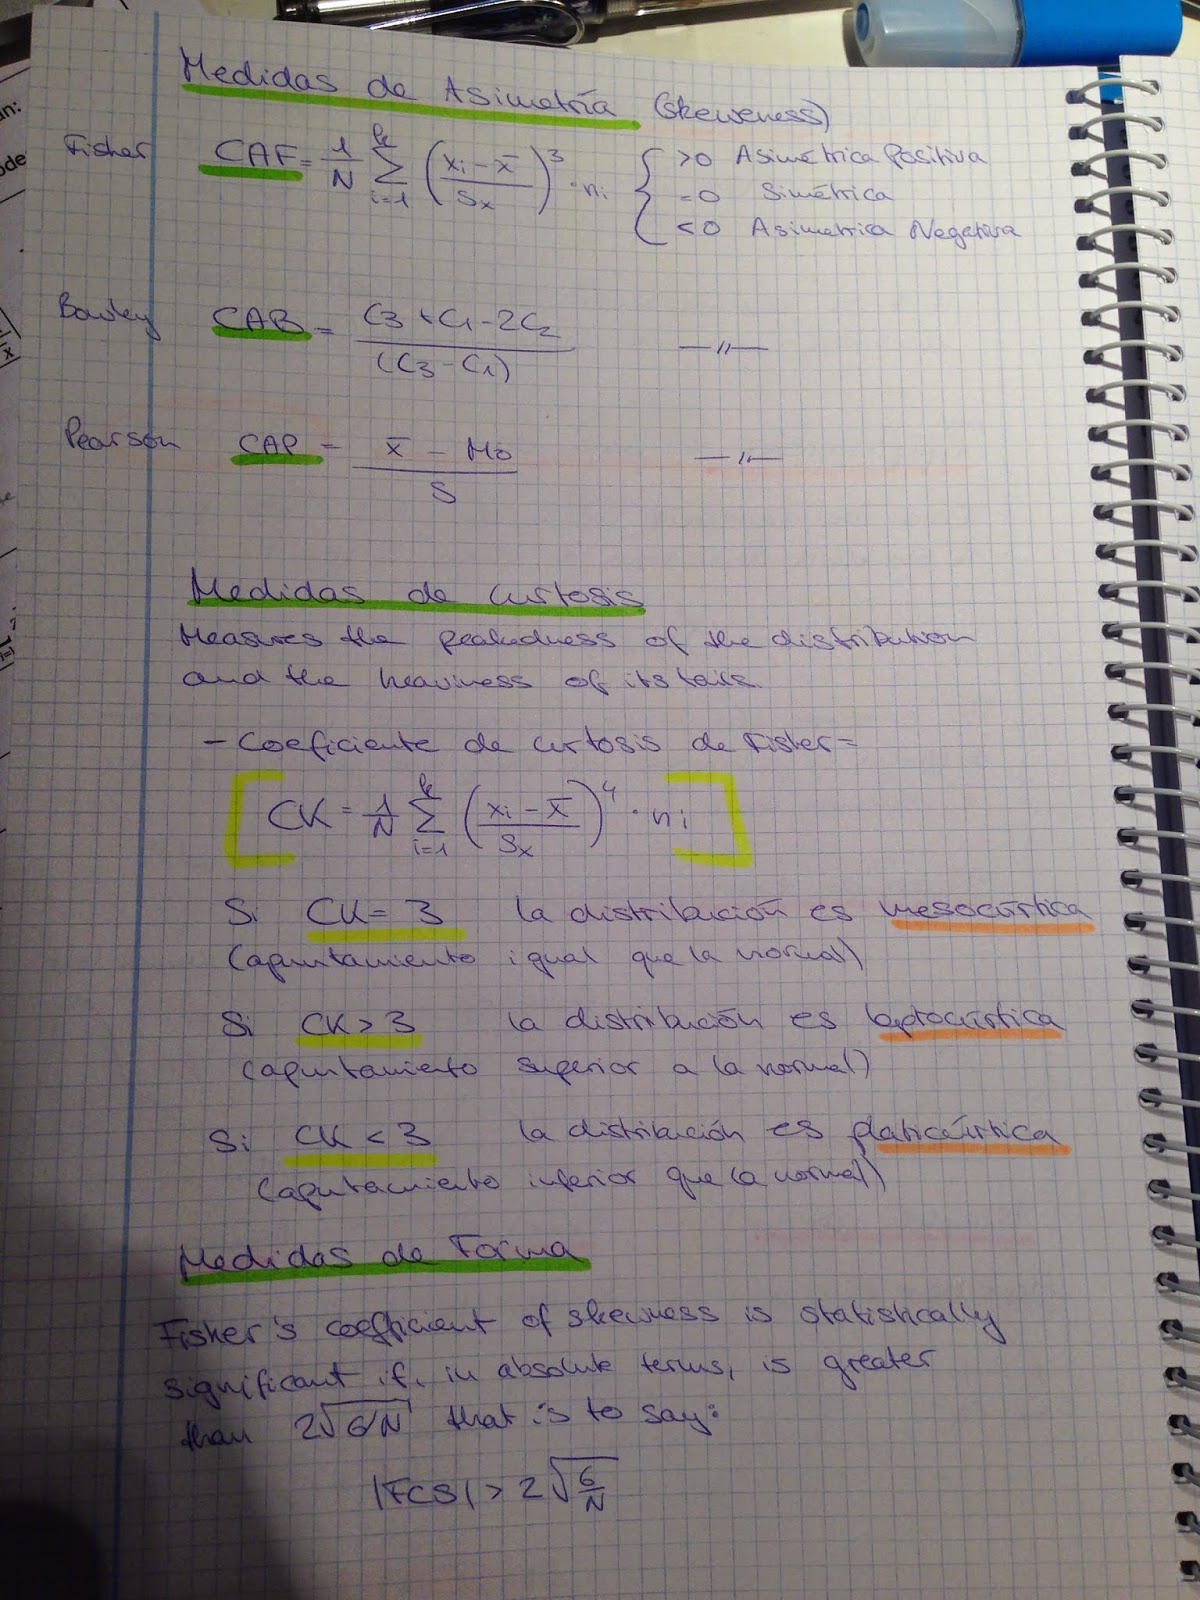 Medidas de Asimetría (skeweness)
Fisher CAF = 1/N ∑_{i=1}^{k} ((xi - x̄)/Sx)^3 · ni { >0 Asimétrica Positiva
=0 Simétrica
<0 Asimetrica Negativa
Bowley CAB = (C3 + C1 - 2C2)/(C3 - C1) —"—
Pearson CAP = (x̄ - Mo)/S —"—
Medidas de curtosis
Measures the peakedness of the distribution
and the heaviness of its tails.
- Coeficiente de curtosis de Fisher =
[CK = 1/N ∑_{i=1}^{k} ((xi - x̄)/Sx)^4 · ni]
Si CK = 3 la distribución es mesocúrtica
(apuntamiento igual que la normal)
Si CK > 3 la distribución es leptocúrtica
(apuntamiento superior a la normal)
Si CK < 3 la distribución es platicúrtica
(apuntamiento inferior que la normal)
Medidas de Forma
Fisher's coefficient of skewness is statistically
significant if, in absolute terms, is greater
than 2√6/N that is to say:
|FCS| > 2√(6/N)